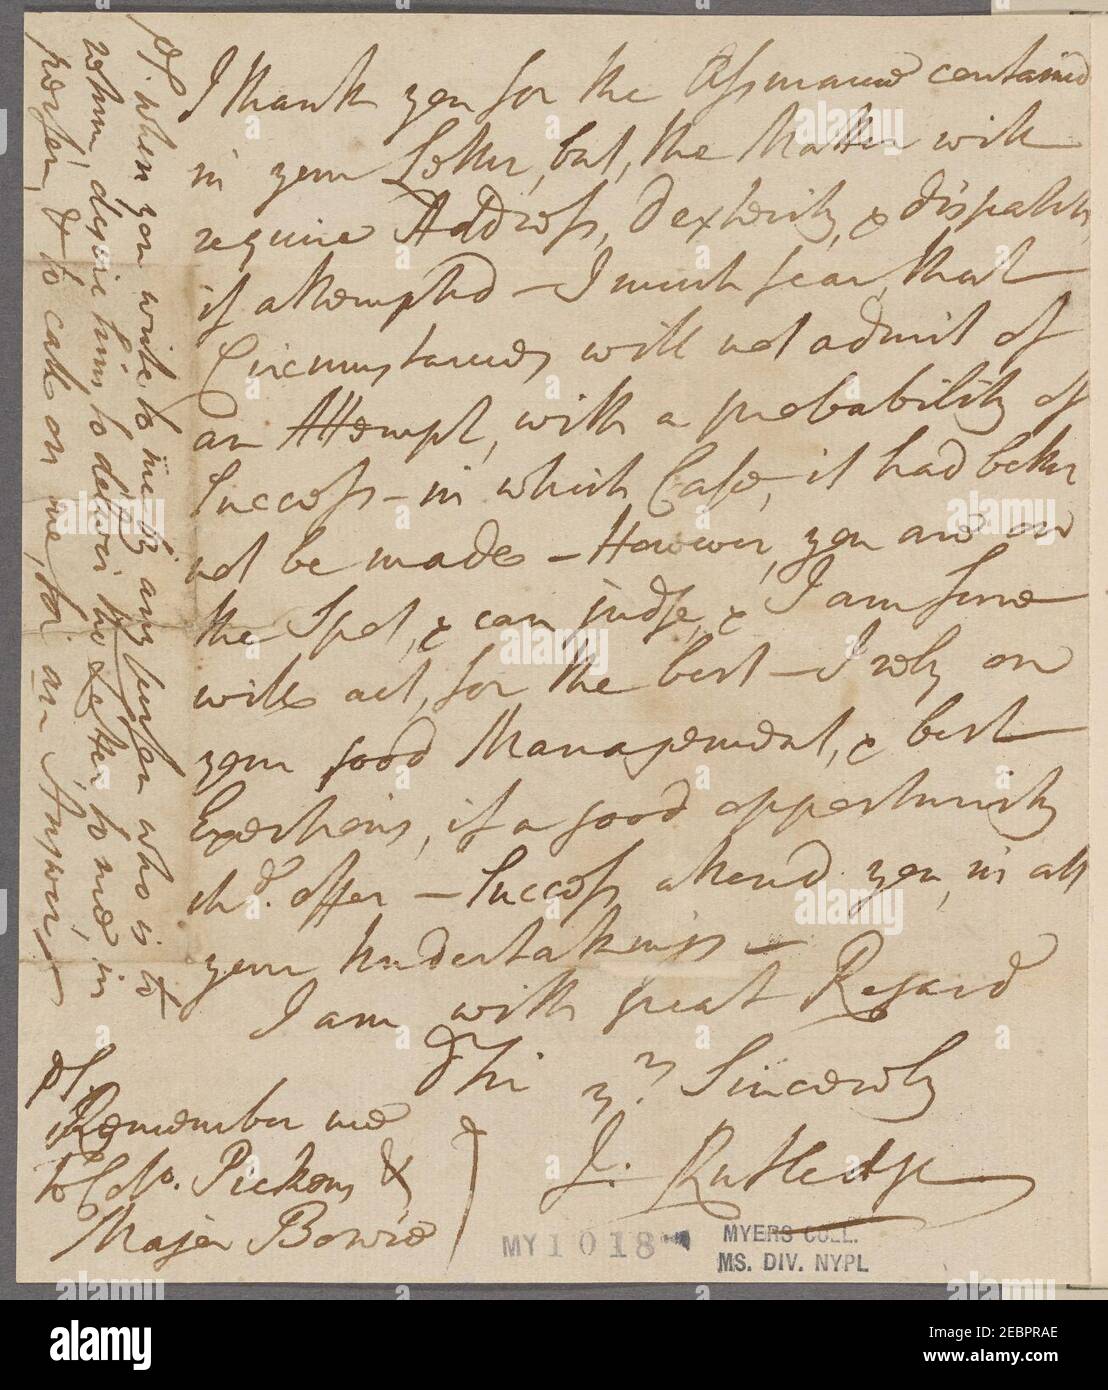 I thank you for the Assurance contained
in your Letter, but, the Matter will
require Address, Dexterity, & dispatch,
if attempted – I much fear, that
Circumstances will not admit of
an Attempt, with a probability of
Success – in which Case, it had better
not be made – However, you are on
the Spot, & can judge, & I am sure
will act, for the best – I rely on
your good Management, & best
Exertions, if a good opportunity
shd. offer – Success attend you, in all
your Undertakings –
I am with great Regard
yr. Sincerely
J. Rutledge
pS.
Remember me
to Colo. Pickens &
Major Bowie
pS. when you write to me by any person who is to
return, desire him, to deliver the Letter, to me in
person, & to call on me, for an Answer,
MY 1018
MYERS COLL.
MS. DIV. NYPL
alamy
Image ID: 2EBPRAE
www.alamy.com